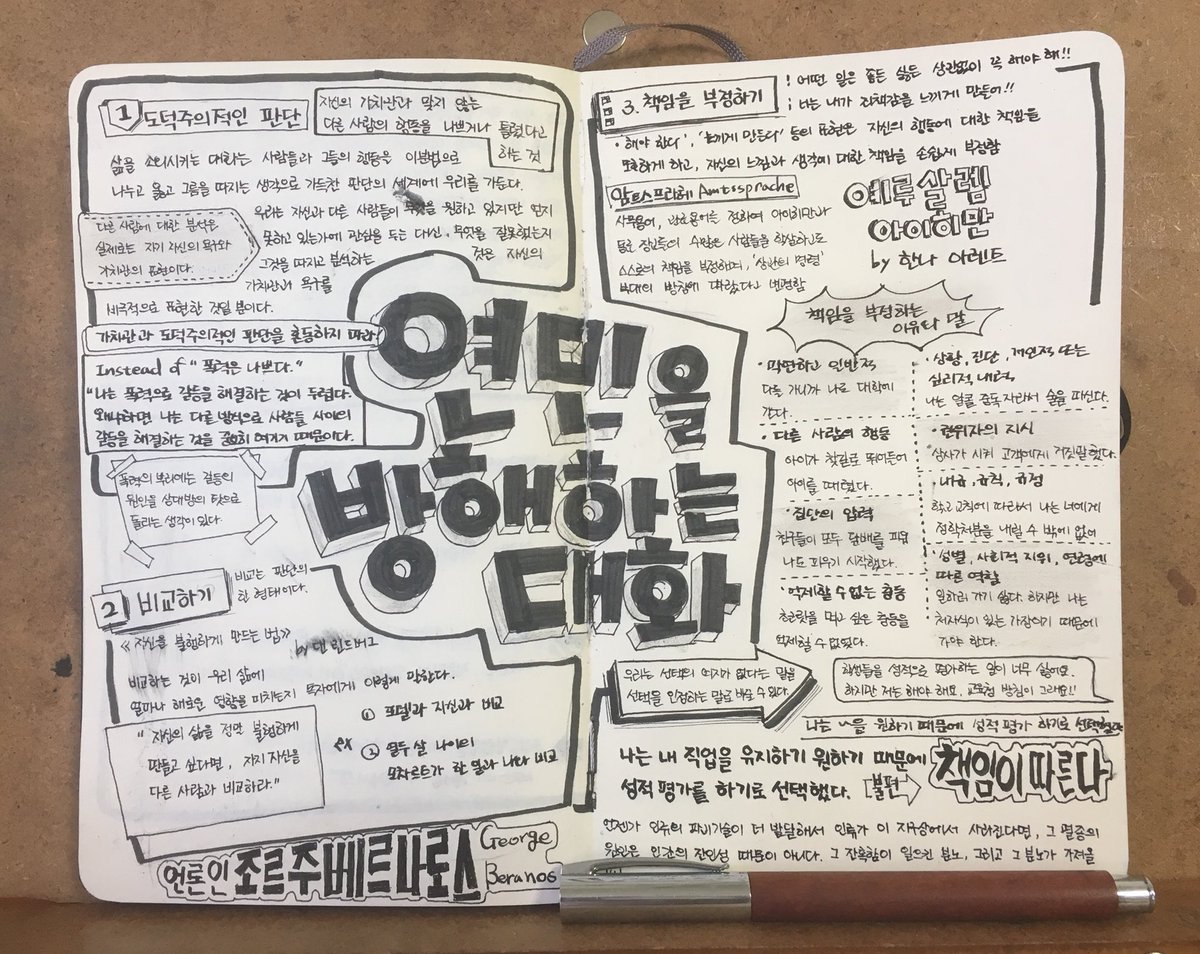 1 도덕주의적인 판단
자신의 가치관과 맞지 않는
다른 사람의 행동을 나쁘거나 틀렸다고
하는 것
삶을 소외시키는 대화는 사람들과 그들의 행동은 이분법으로
나누고 옳고 그름을 따지는 생각으로 가득한 판단의 세계에 우리를 가둔다.
우리는 자신과 다른 사람들이 무엇을 원하고 있지만 얻지
못하고 있는가에 관심을 두는 대신, 무엇을 잘못했는지
그것을 따지고 분석하는 것은 자신의
가치관과 욕구를
비극적으로 표현한 것일 뿐이다.
다른 사람에 대한 분석은
실제로는 자기 자신의 욕구와
가치관의 표현이다.
가치관과 도덕주의적인 판단을 혼동하지 마라!
Instead of "폭력은 나쁘다."
"나는 폭력으로 갈등을 해결하는 것이 두렵다.
왜냐하면 나는 다른 방식으로 사람들 사이의
갈등을 해결하는 것을 여기기 때문이다.
폭력의 뿌리에는 갈등의
원인을 상대방의 탓으로
돌리는 생각이 있다.
연민을
방해하는
대화
2 비교하기
비교는 판단의
한 형태이다.
《자신을 불행하게 만드는 법》 by 댄 그린드버그
비교하는 것이 우리 삶에
얼마나 해로운 영향을 미치는지 독자에게 이렇게 말한다.
"자신의 삶을 정말 불행하게
만들고 싶다면, 자기 자신을
다른 사람과 비교하라."
ex
① 모델과 자신과 비교
② 열두 살 나이의
모차르트가 한 일과 나와 비교
언론인 조르주 베르나로스
George
Beranos
3. 책임을 부정하기
! 어떤 일은 좋든 싫든 상관없이 꼭 해야 해!!
; 너는 내가 죄책감을 느끼게 만들어!!
· '해야 한다', '느끼게 만든다' 등의 표현은 자신의 행동에 대한 책임을
모호하게 하고, 자신의 느낌과 생각에 대한 책임을 손쉽게 부정함
암트스프라헤 Amtssprache
사무용어, 관료용어를 칭하며 아이히만과
동료 장교들의 수많은 사람들을 학살하고도
스스로의 책임을 부정했지, '상관의 명령'
부대의 방침에 따랐다고 변명함
예루살렘
아이히만
by 한나 아렌트
책임을 부정하는
이유나 말
· 막연하고 일반적
다들 가니까 나도 대학에
갔다.
· 다른 사람의 행동
아이가 찻길로 뛰어들어
아이를 때렸다.
· 집단의 압력
친구들이 모두 담배를 피워
나도 피우기 시작했다.
· 억제할 수 없는 충동
초콜릿을 먹고 싶은 충동을
억제할 수 없었다.
· 상황, 진단, 개인적 또는
심리적 내력
나는 알콜 중독자라서 술을 마신다.
· 권위자의 지시
상사가 시켜 고객에게 거짓말했다.
· 내규, 규칙, 규정
학교 규칙에 따라서 나는 너에게
정학처분을 내릴 수 밖에 없어
· 성별, 사회적 지위, 연령에
따른 역할
일하러 가기 싫다. 하지만 나는
처자식이 있는 가장이기 때문에
가야 한다.
우리는 선택의 여지가 없다는 말을
선택을 인정하는 말로 바꿀 수 있다.
학생들을 성적으로 평가하는 일이 너무 싫어요.
하지만 저는 해야 해요. 교육청 방침이 그래요!!
나는 ~을 원하기 때문에 성적 평가 하기로 선택했다
나는 내 직업을 유지하기 원하기 때문에
성적 평가를 하기로 선택했다.
불편
책임이 따른다
언젠가 인류의 파괴기술이 더 발달해서 인류가 이 지구상에서 사라진다면, 그 멸종의
원인은 인간의 잔인성 때문이 아니다. 그 잔혹함이 일으킨 분노, 그리고 그 분노가 가져올